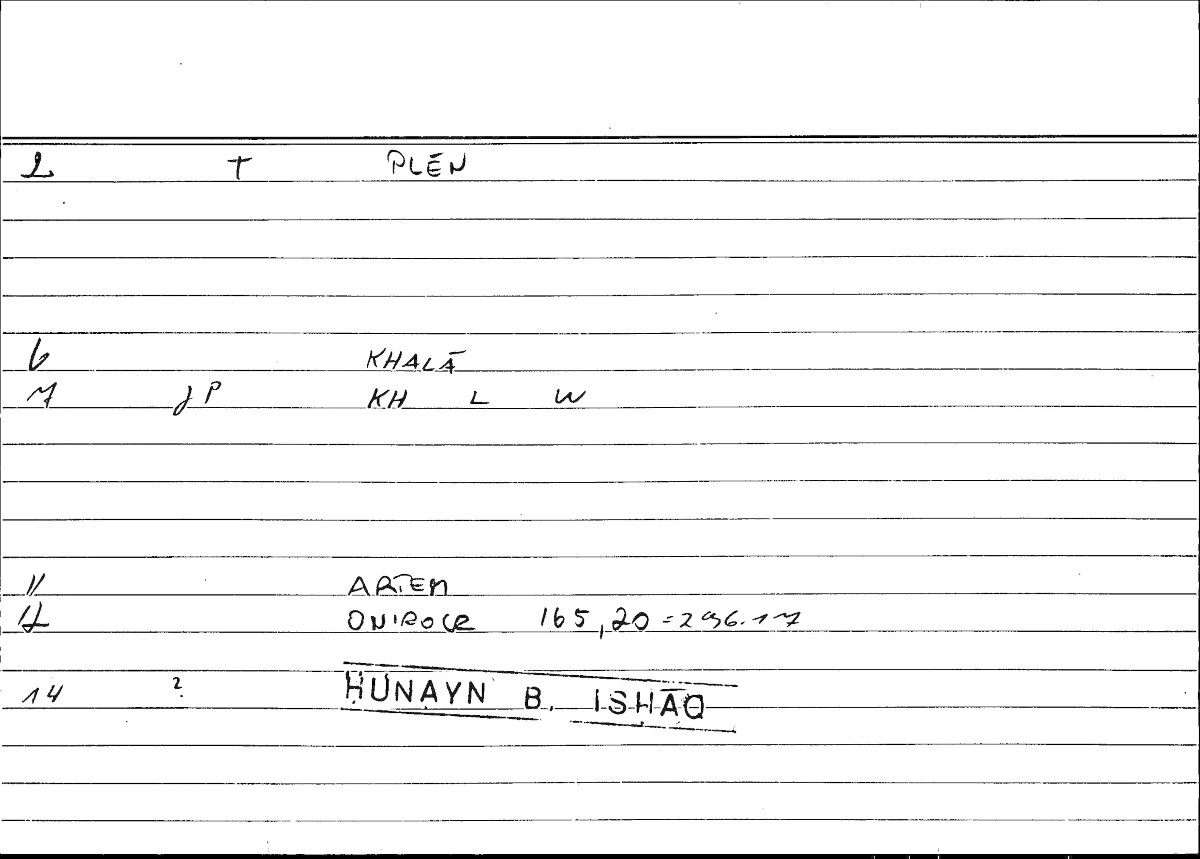 2 T PLĒN
6 KHALĀ
7 JP KH L W
11 ARTEM
12 ONIROCR 165,20=296.17
14 ? ḤUNAYN B. ISḤĀQ